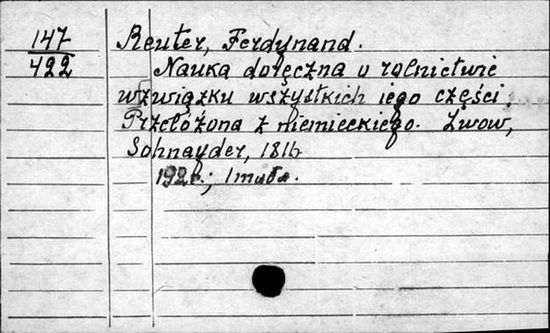 147
422
Reuter, Ferdynand.
Nauka doręczna o rolnictwie
w związku wszystkich iego części.
Przełóżona z niemieckiego. Lwow,
Schnayder, 1816
192 s.; 1